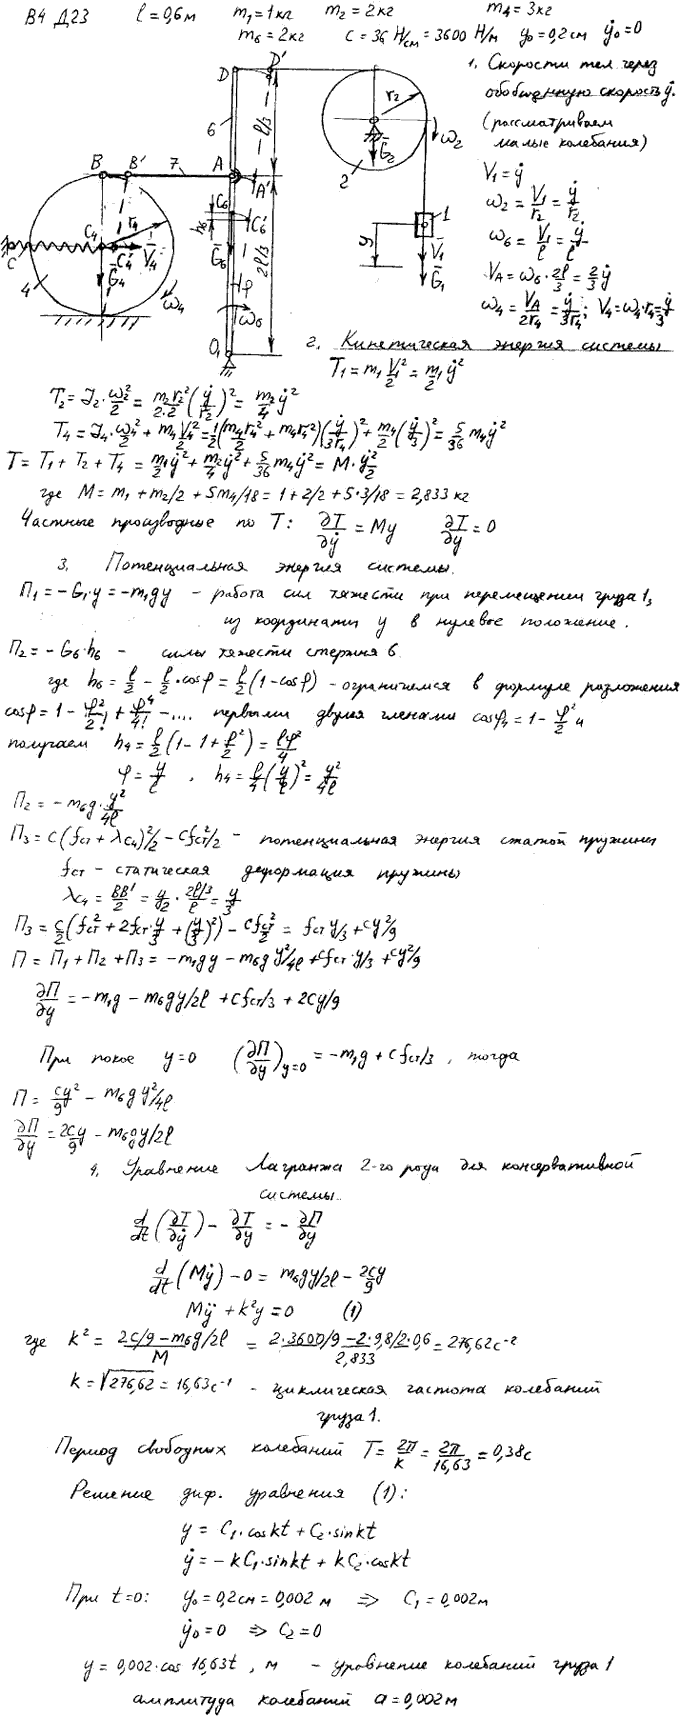 В4 Д23 l = 0,6м m₁=1кг m₂ = 2кг m₄ = 3кг
m₆ = 2кг c = 36 Н/см = 3600 Н/м y₀=0,2см ẏ₀=0
1. Скорости тел через
обобщенную скорость ẏ.
(рассматриваем
малые колебания)
V₁ = ẏ
ω₂ = V₁/r₂ = ẏ/r₂
ω₆ = V₁/l = ẏ/l
V_A = ω₆·2l/3 = 2/3 ẏ
ω₄ = V_A/2r₄ = ẏ/3r₄; V₄=ω₄·r₄=ẏ/3
D D' r₂ 6 l/3 ω₂ G₂ 2
B B' 7 A A' C₆ C₆' h₆ G₆ 2l/3 φ ω₆ O₁
C C₄ C₄' r₄ V₄ G₄ 4 ω₄
y 1 V₁ G₁
2. Кинетическая энергия системы
T₁ = m₁ V₁²/2 = m₁/2 ẏ²
T₂ = J₂·ω₂²/2 = m₂r₂²/2·2 (ẏ/r₂)² = m₂/4 ẏ²
T₄ = J₄·ω₄²/2 + m₄V₄²/2 = 1/2(m₄r₄²/2 + m₄r₄²)(ẏ/3r₄)² + m₄/2(ẏ/3)² = 5/36 m₄ẏ²
T = T₁ + T₂ + T₄ = m₁/2 ẏ² + m₂/4 ẏ² + 5/36 m₄ẏ² = M·ẏ²/2
где M = m₁ + m₂/2 + 5m₄/18 = 1 + 2/2 + 5·3/18 = 2,833 кг
Частные производные по T: ∂T/∂ẏ = Mẏ ∂T/∂y = 0
3. Потенциальная энергия системы.
П₁ = -G₁·y = -m₁gy - работа сил тяжести при перемещении груза 1,
из координаты y в нулевое положение.
П₂ = -G₆·h₆ - силы тяжести стержня 6.
где h₆ = l/2 - l/2·cosφ = l/2(1-cosφ) - ограничимся в формуле разложения
cosφ = 1 - φ²/2! + φ⁴/4! - .... первыми двумя членами cosφ₄ = 1 - φ²/2 и
получаем h₄ = l/2(1-1+φ²/2) = lφ²/4
φ = y/l , h₄ = l/4(y/l)² = y²/4l
П₂ = -m₆g·y²/4l
П₃ = c(fст + λc₄)²/2 - cfст²/2 - потенциальная энергия сжатой пружины
fст - статическая деформация пружины
λc₄ = BB'/2 = y/2 · 2l/3/l = y/3
П₃ = c/2(fст² + 2fст·y/3 + (y/3)²) - cfст²/2 = fст y/3 + cy²/9
П = П₁ + П₂ + П₃ = -m₁gy - m₆g y²/4l + cfст·y/3 + cy²/9
∂П/∂y = -m₁g - m₆gy/2l + cfст/3 + 2cy/9
При покое y=0 (∂П/∂y)y=0 = -m₁g + cfст/3 , тогда
П = cy²/9 - m₆g y²/4l
∂П/∂y = 2cy/9 - m₆gy/2l
4. Уравнение Лагранжа 2-го рода для консервативной
системы.
d/dt(∂T/∂ẏ) - ∂T/∂y = - ∂П/∂y
d/dt(Mẏ) - 0 = m₆gy/2l - 2cy/9
Mÿ + k²y = 0 (1)
где k² = 2c/9 - m₆g/2l / M = 2·3600/9 - 2·9,8/2·0,6 / 2,833 = 276,62 с⁻²
k = √276,62 = 16,63 с⁻¹ - циклическая частота колебаний
груза 1.
Период свободных колебаний T = 2π/k = 2π/16,63 = 0,38 с
Решение диф. уравнения (1):
y = C₁·cos kt + C₂·sin kt
ẏ = -kC₁·sin kt + kC₂·cos kt
При t=0: y₀ = 0,2см = 0,002 м ⇒ C₁ = 0,002м
ẏ₀ = 0 ⇒ C₂ = 0
y = 0,002·cos 16,63t , м - уравнение колебаний груза 1
амплитуда колебаний a = 0,002 м